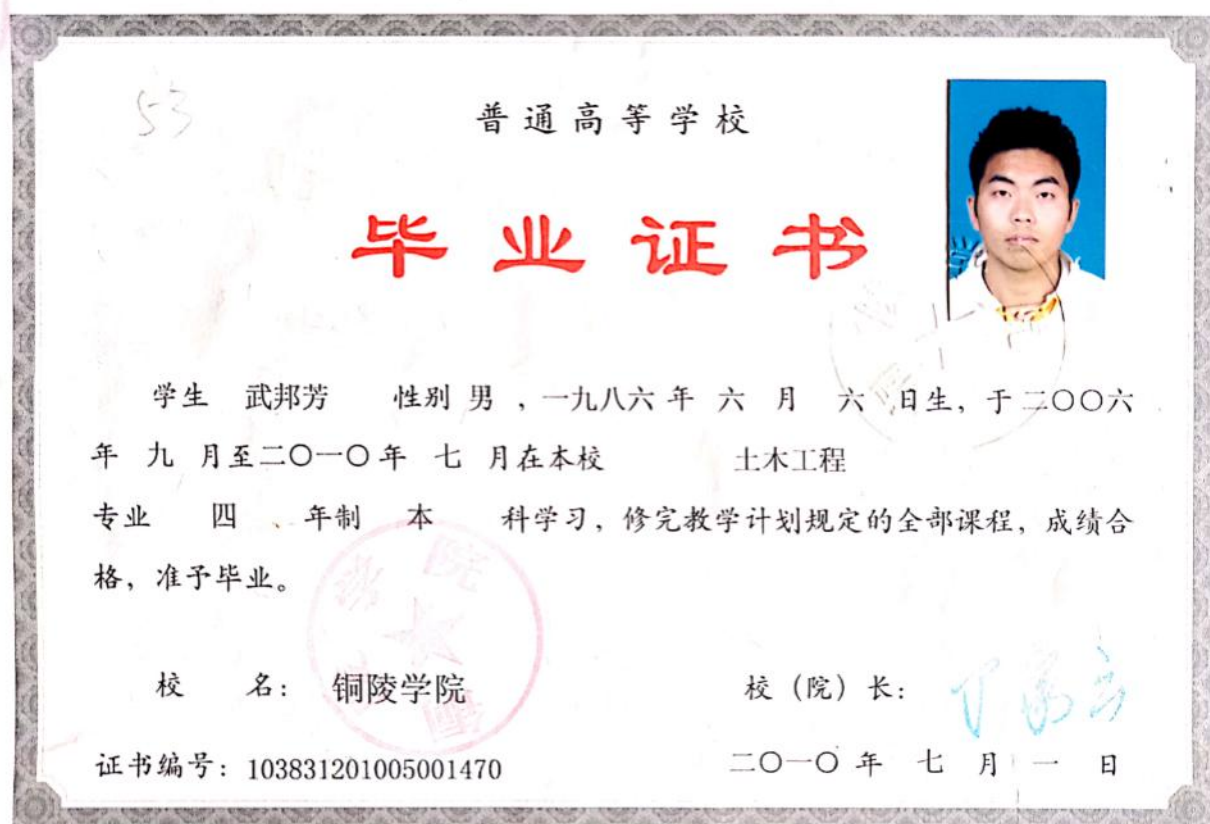 53
普通高等学校
毕业证书
学生 武邦芳 性别 男 ，一九八六 年 六 月 六 日生，于二〇〇六
年 九 月至二〇一〇年 七 月在本校 土木工程
专业 四 、年制 本 科学习，修完教学计划规定的全部课程，成绩合
格，准予毕业。
校 名： 铜陵学院 校（院）长：
证书编号：103831201005001470 二〇一〇 年 七 月 一 日